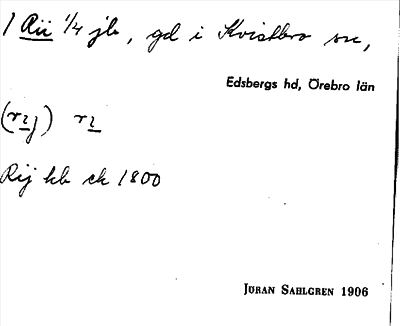 1 Rii 1/4 jb, gd i Kvistbro sn,
Edsbergs hd, Örebro län
Rij hb ck 1800
JÖRAN SAHLGREN 1906